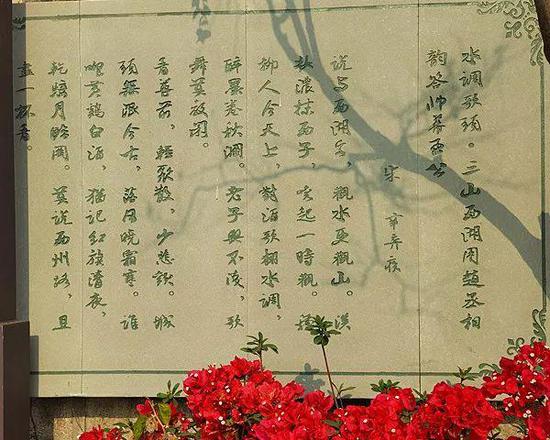 水调歌头·三山西湖用赵丞相
韵答帅幕王公
宋 辛弃疾
说与西湖客，观水更观山。淡
妆浓抹西子，唤起一时观。种
柳人今天上，对酒歌翻水调，
醉墨卷秋澜。老子兴不浅，歌
舞莫教闲。
看尊前，轻聚散，少悲欢。城
头无限今古，落日晓霜寒。谁
唱黄鸡白酒，犹记红旗清夜，
千骑月临关。莫说西州路，且
尽一杯看。